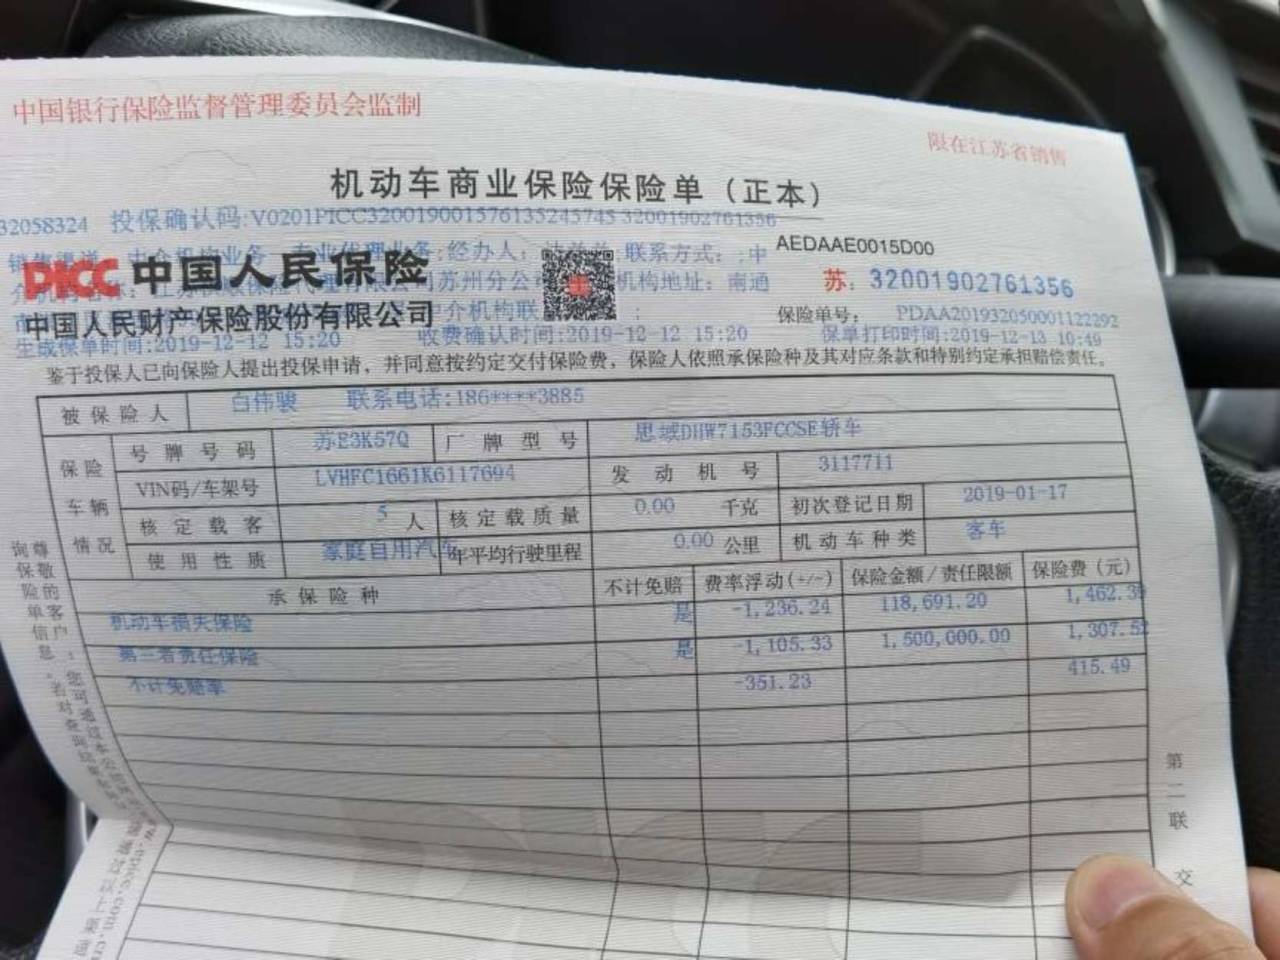 中国银行保险监督管理委员会监制
限在江苏省销售
机动车商业保险保险单（正本）
32058324 投保确认码:V0201PICC320019001576135245745 320019027613​56
AEDAAE0015D00
专业代理业务;经办人: 联系方式: ;中
PICC 中国人民保险
苏州分公司 机构地址: 南通
苏: 320019027613​56
中国人民财产保险股份有限公司
保险单号: PDAA201932050001122292
生成保单时间:2019-12-12 15:20 收费确认时间:2019-12-12 15:20 保单打印时间:2019-12-13 10:49
鉴于投保人已向保险人提出投保申请，并同意按约定交付保险费，保险人依照承保险种及其对应条款和特别约定承担赔偿责任。
被保险人 白伟骏 联系电话:186****3885
保险车辆情况
号牌号码 苏E3K57Q 厂牌型号 思域DHW7153FCCSE轿车
VIN码/车架号 LVHFC1661K6117694 发动机号 3117711
核定载客 5 人 核定载质量 0.00 千克 初次登记日期 2019-01-17
使用性质 家庭自用汽车 年平均行驶里程 0.00 公里 机动车种类 客车
承保险种 不计免赔 费率浮动(+/-) 保险金额/责任限额 保险费（元）
机动车损失保险 是 -1,236.24 118,691.20 1,462.39
第三者责任保险 是 -1,105.33 1,500,000.00 1,307.52
不计免赔率 -351.23 415.49
尊敬的客户：您可通过本公司
询保险单信息。若对查询结果
第二联 交